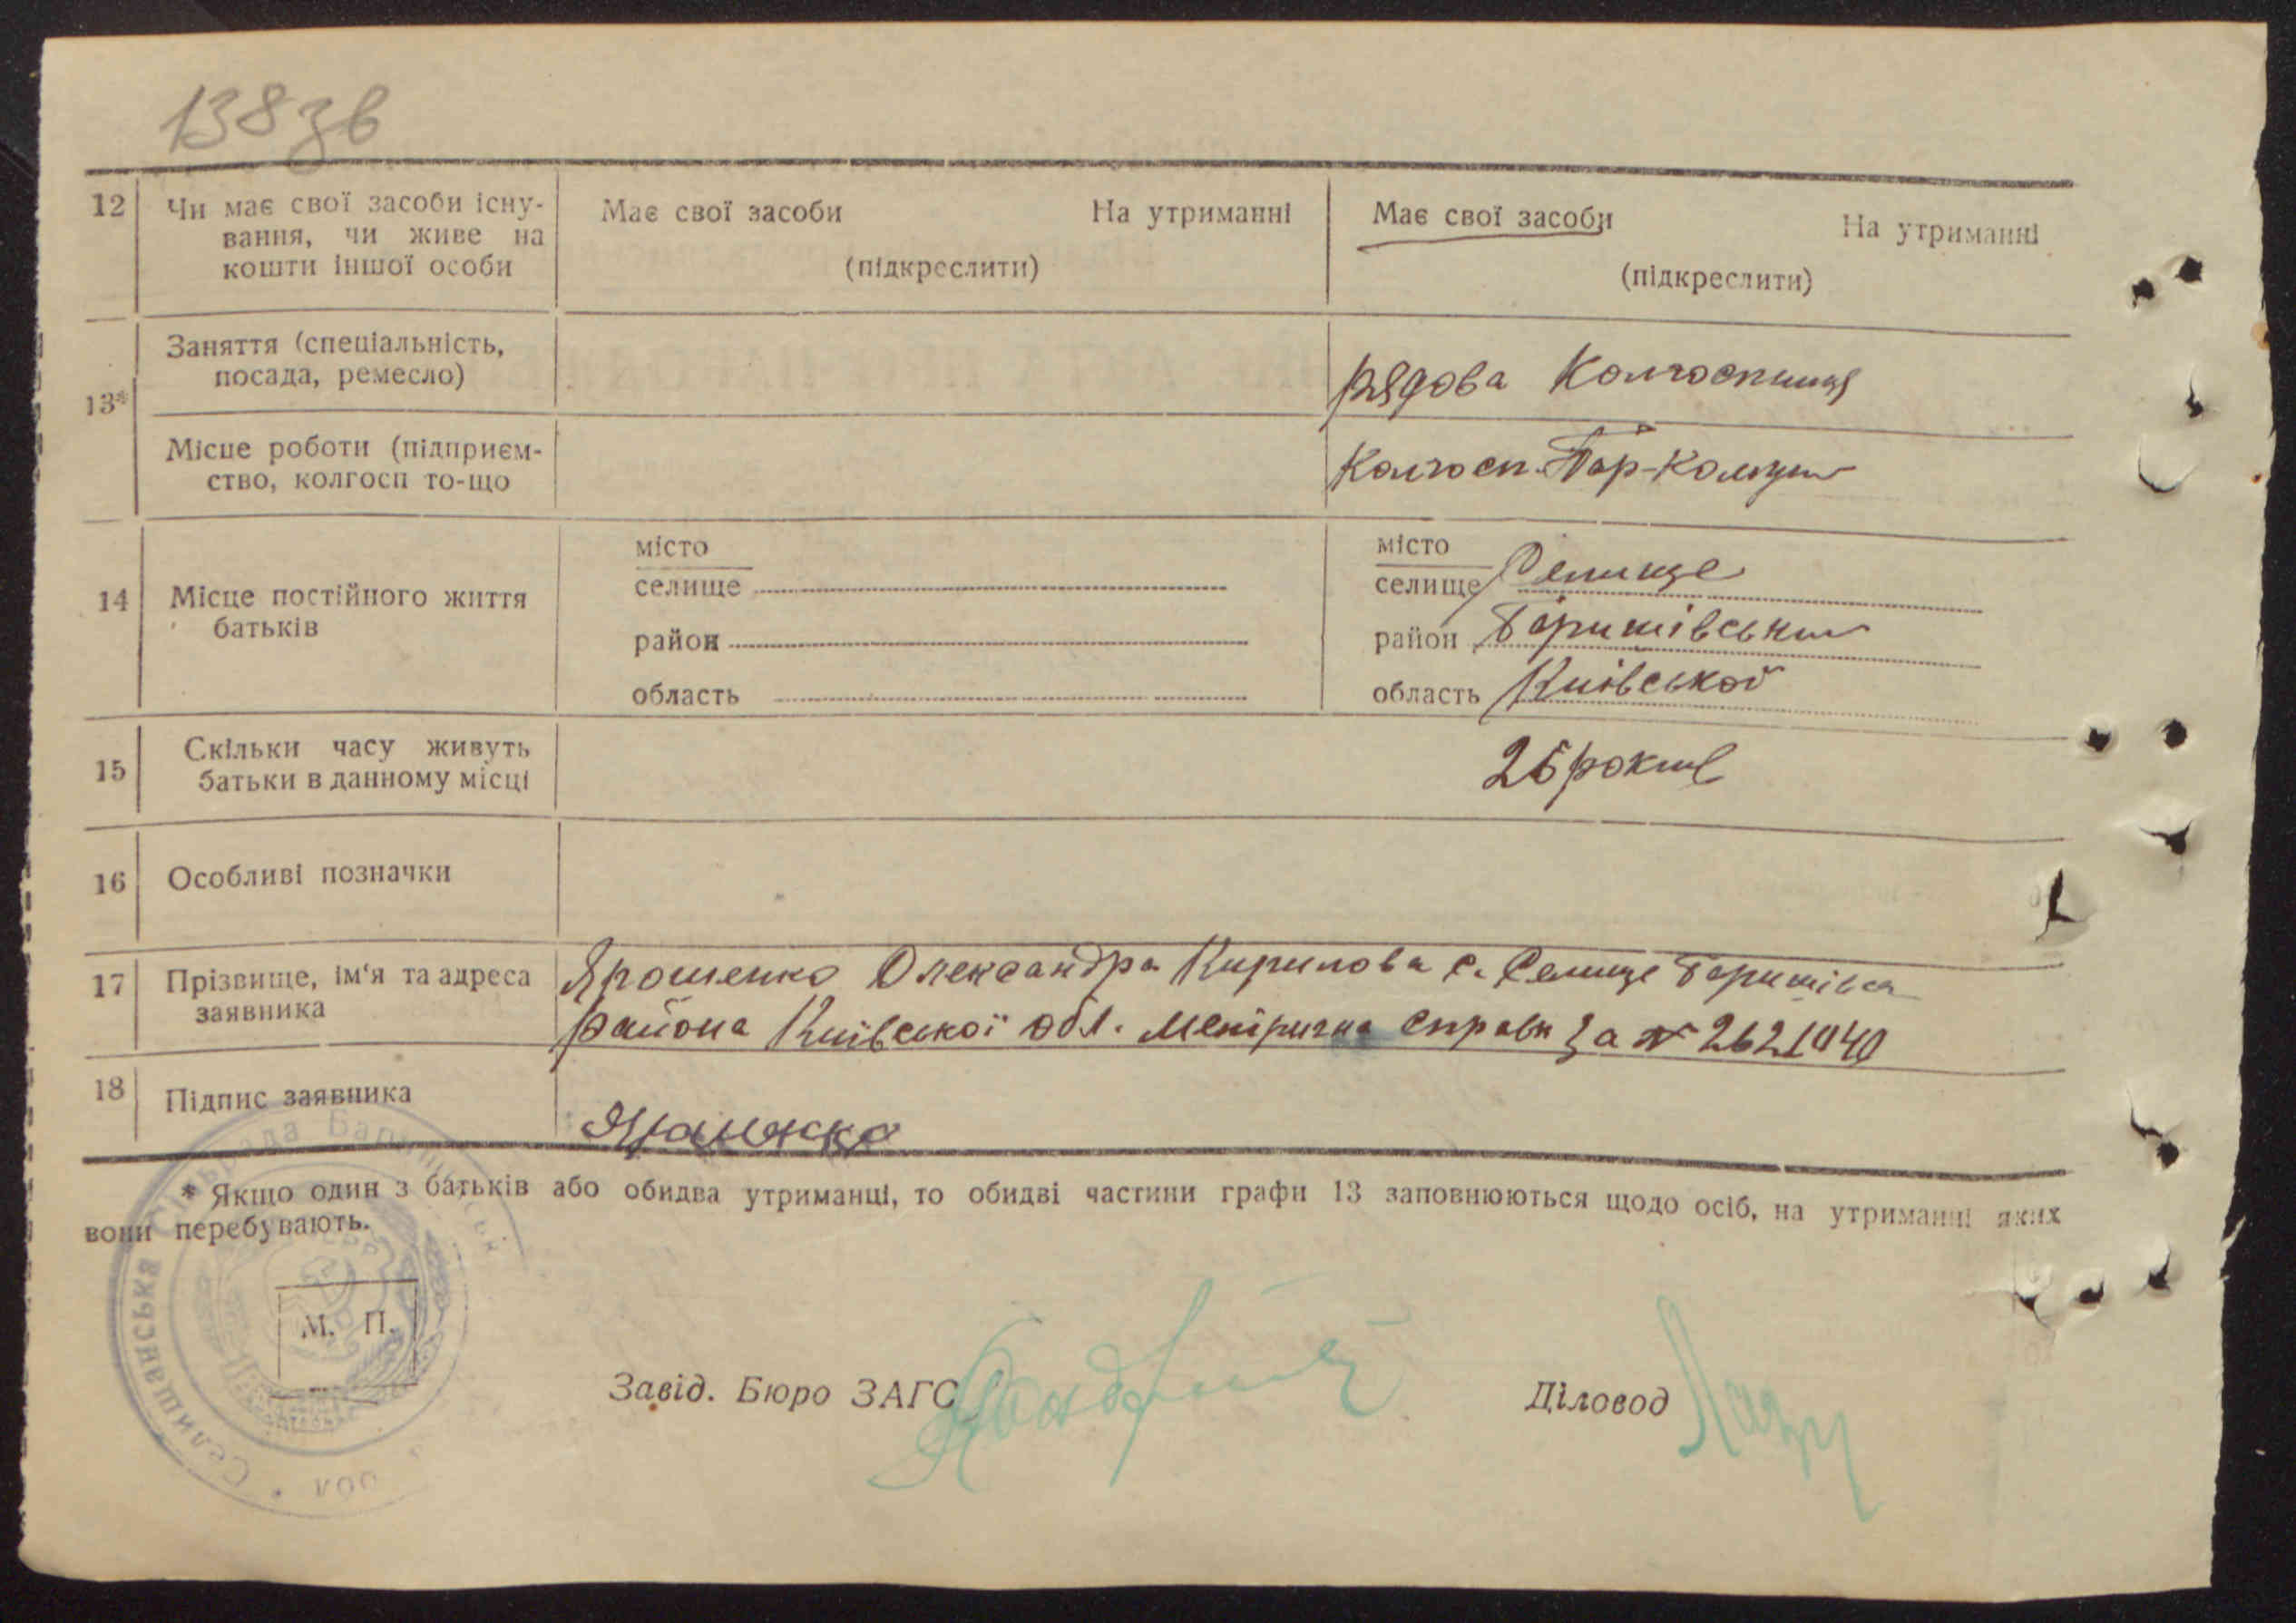 138 зв
12 Чи має свої засоби існу-
вання, чи живе на
кошти іншої особи
Має свої засоби На утриманні
(підкреслити)
Має свої засоби На утриманні
(підкреслити)
13*
Заняття (спеціальність,
посада, ремесло)
рядова Колгоспниця
Місце роботи (підприєм-
ство, колгосп то-що
Колгосп
14 Місце постійного життя
батьків
місто
селище
район
область
місто
селище Селище
район Баришівський
область Київської
15 Скільки часу живуть
батьки в данному місці
25 років
16 Особливі позначки
17 Прізвище, ім'я та адреса
заявника
Ярошенко Олександра Кирилова с. Селище Баришівск
района Київської обл. Метрична справк за № 262 1940
18 Підпис заявника
* Якщо один з батьків або обидва утриманці, то обидві частини графи 13 заповнюються щодо осіб, на утриманні яких
вони перебувають.
Селищанська сільрада Баришівськ обл
М. П.
Завід. Бюро ЗАГС
Діловод